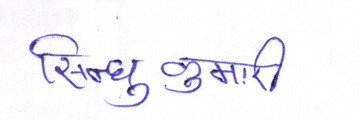 सिन्धु कुमारी